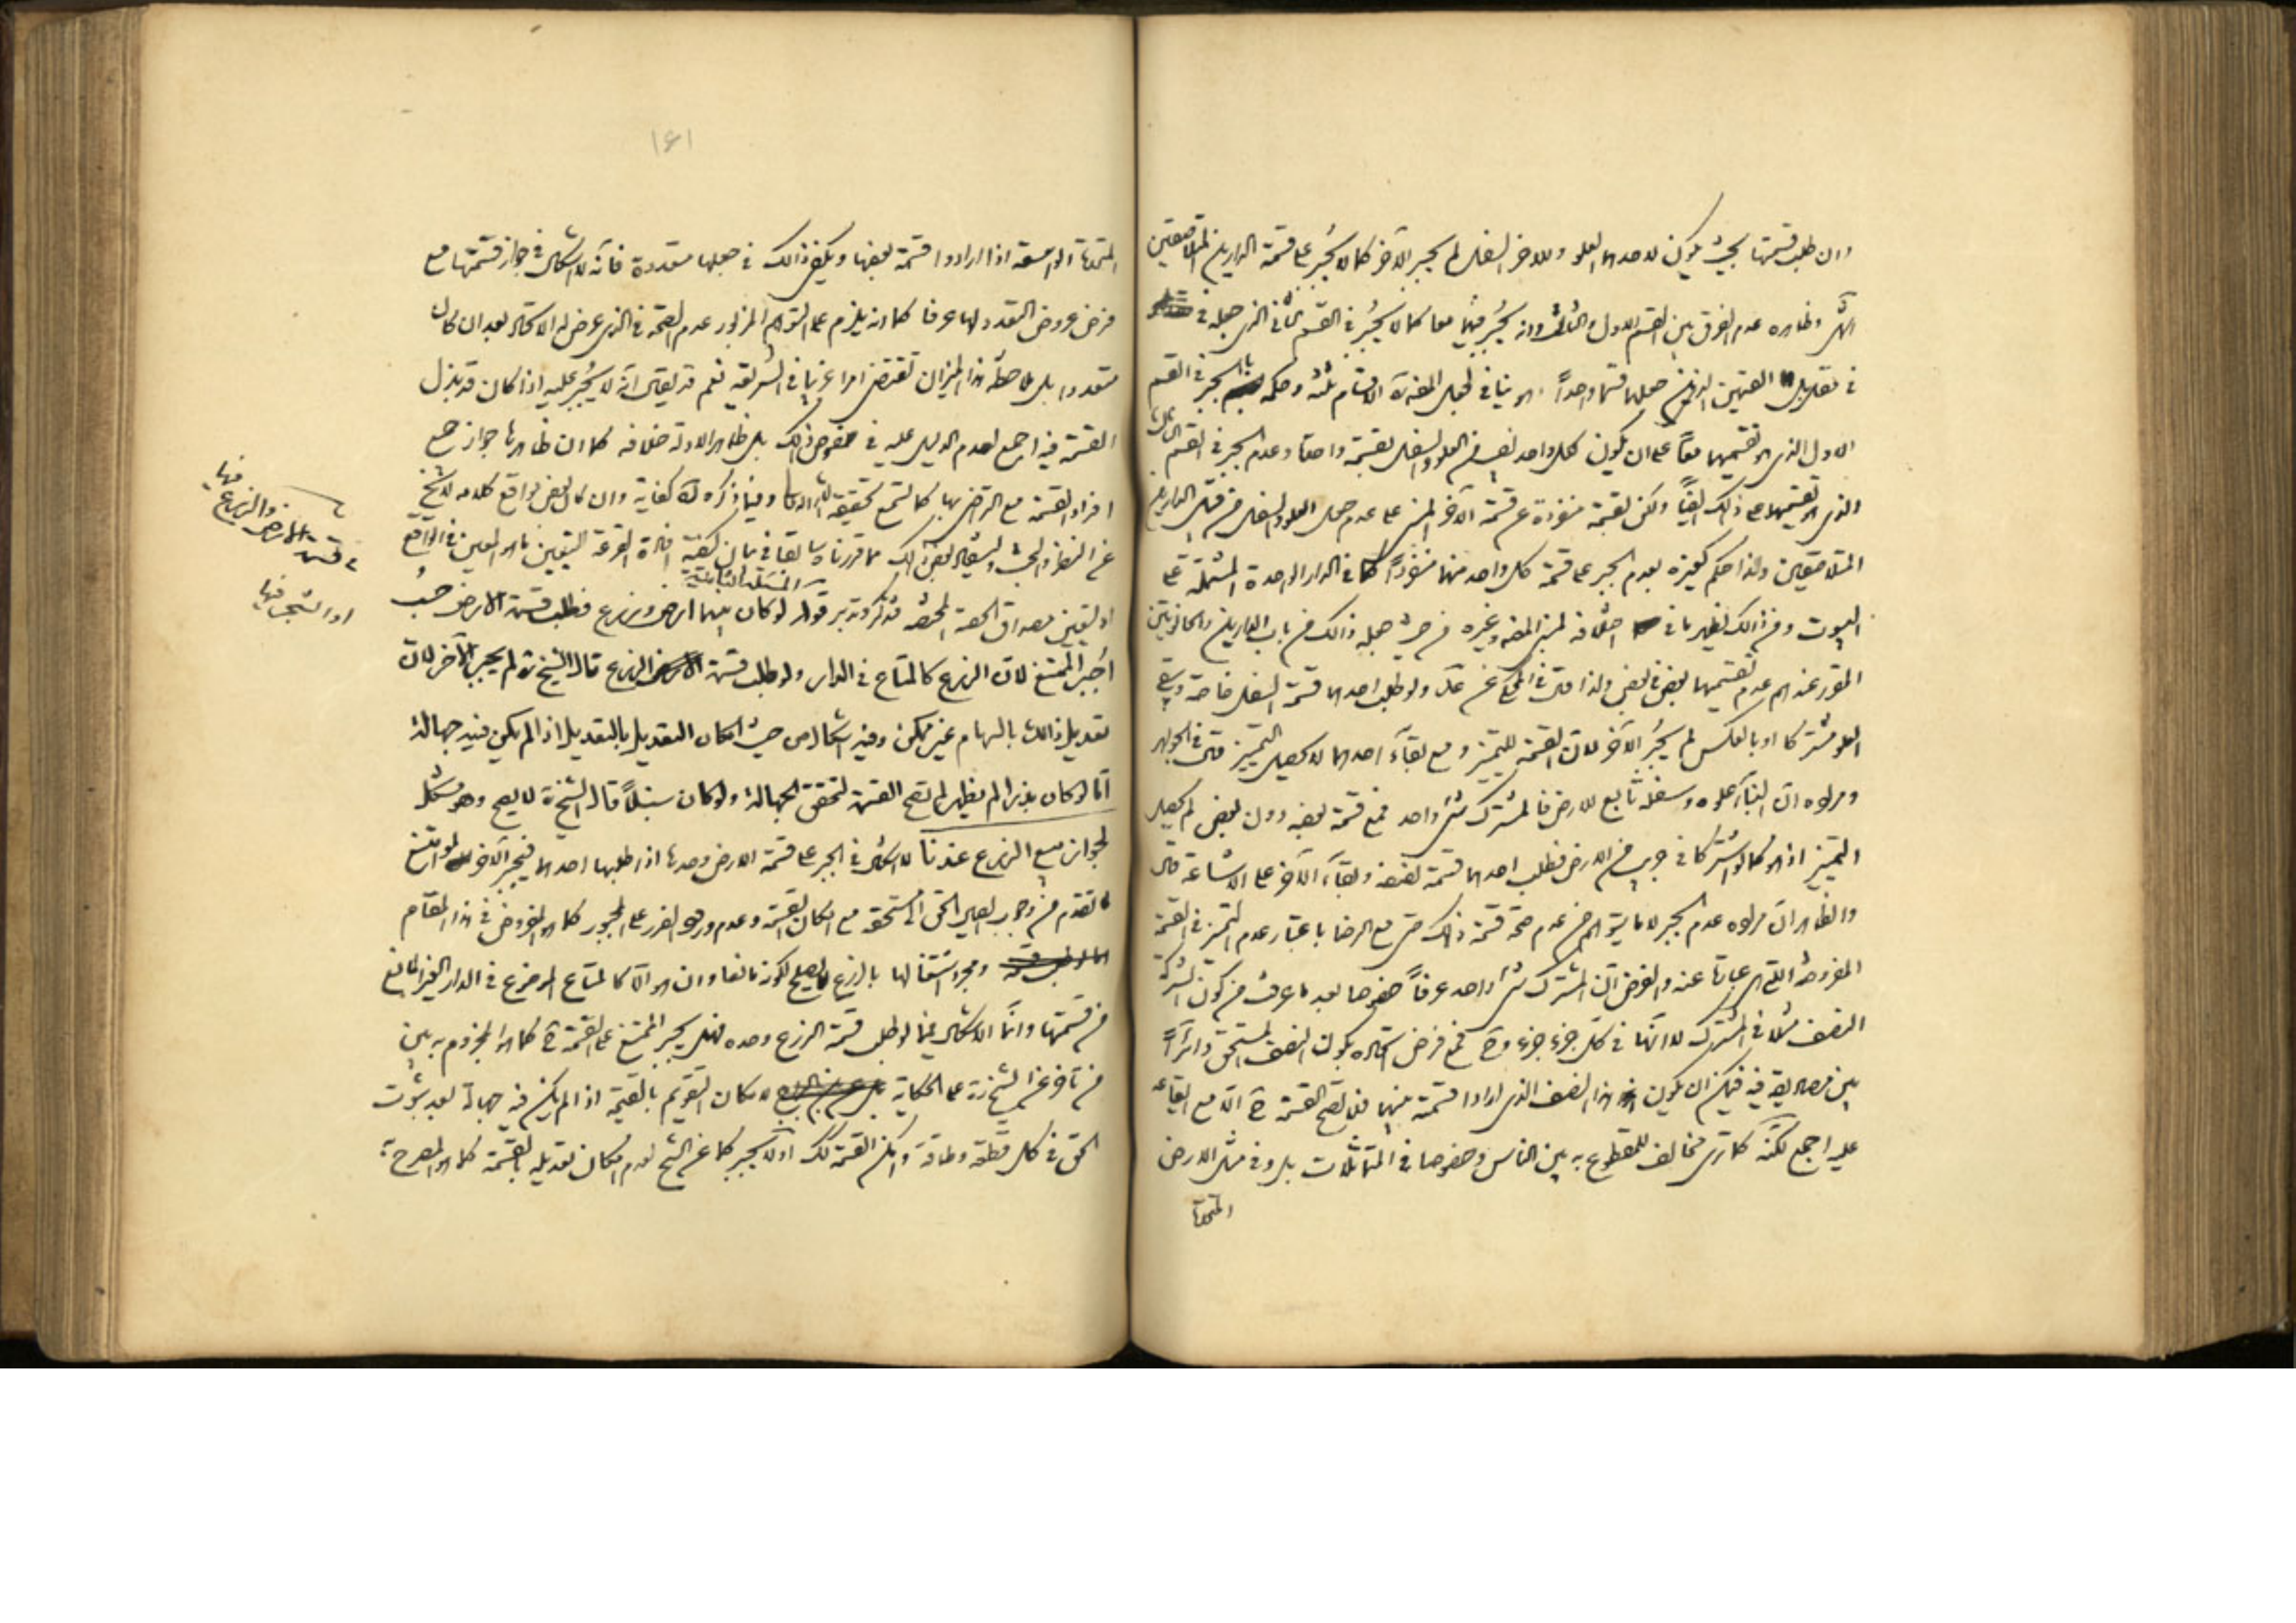 وان طلب قسمتها بحيث يكون لاحدهما العلو وللاخر السفل لم يجبر الآخر كما لا يجبر على قسمة الدارين المتلاصقتين
وظاهره عدم الفرق بين القسم الاول والثالث وانه يجبر فيهما معا كما لا يجبر في القسم الثاني الذي جعله في
في مقابل القسمين الذين جعلهما قسما واحداً وهو ينافي لجعل الاقسام ثلثة وحكمه بالجبر في القسم
الاول الذي هو تقسيمهما معاً على ان يكون لكل واحد نصيب في العلو والسفل بقسمة واحدة وعدم الجبر في القسم الثالث
الذي هو تقسيمهما على ذلك ايضاً ولكن بقسمة منفردة عن قسمة الآخر المبني على عدم جعل العلو والسفل من قبيل الدارين
المتلاصقتين ولذا حكم كغيره بعدم الجبر على قسمة كل واحد منهما منفرداً كما في الدار الواحدة المشتملة على
البيوت ومن ذلك يظهر ما في وغيره من حيث جعله ذلك من باب الدارين والخانوتين
المقرر عندهم عدم تقسيمهما بعض في بعض ولذا قال في المحكي عن عد ولو طلب احدهما قسمة السفل خاصة ويبقى
العلو مشتركا او بالعكس لم يجبر الآخر لان القسمة للتميز ومع بقاء احدهما لا يحصل التمييز قال في الجواهر
ومراده ان البناء علوه وسفله تابع للارض فالمشترك شئ واحد فمع قسمة بعضه دون بعض لم يحصل
التمييز اذ هو كما لو اشتركا في جريب من الارض فطلب احدهما قسمة نصفه وبقاء الآخر على الاشاعة قال
والظاهر ان مراده عدم الجبر لا ما يتوهم من عدم صحة قسمة ذلك حتى مع الرضا باعتبار عدم التميز في القسمة
المفروضة التي هي عبارة عنه والفرض ان المشترك شئ واحد عرفاً خصوصا بعد ما عرفت من كون الشركة
النصف مثلا في المشترك لا انها في كل جزء جزء وح فمع فرض اتحاده يكون النصف المستحق دائراً
بين مصاديقه فيمكن ان يكون هذا النصف الذي ارادا قسمة بينهما فلا تصح القسمة ح الا مع ايقاعه
عليه اجمع لكنه كما ترى مخالف للمقطوع به بين الناس وخصوصا في المتماثلات بل وفي مثل الارض
المتحدة
١٦١
المتحدة الواسعة اذا ارادوا قسمة بعضها ويكفي ذلك في جعلها متعددة فانه لا اشكال في جواز قسمتها مع
فرض عروض التعدد لها عرفا كما انه يلزم على التوهم المزبور عدم الصحة في الذي عرض له الاتحاد بعد ان كان
متعددا بل ملاحظة هذا الميزان تقتضي امرا غريبا في الشريعة نعم قد يقال انه لا يجبر عليه اذا كان قد بذل
القسمة فيه اجمع لعدم الدليل عليه في خصوص ذلك بل ظاهر الادلة خلافه كما ان ظاهرها جواز جمع
افراد القسمة مع التراضي بها كما تسمع تحقيقه انشاء الله وفيما ذكره كفاية وان كان بعض مواقع كلامه لا يخ
عن النظر والبحث وليستفاد بعض ذلك مما قررناه سابقا في بيان كيفية افادة القرعة التعيين ما هو المعين في الواقع
المسئلة الثانية
او تعيين مصداق الحصة المختصة فتذكر وتدبر قوله لو كان بينهما ارض وزرع فطلب قسمة الارض حسب
اجبر الممتنع لان الزرع كالمتاع في الدار ولو طلب قسمة الزرع قال الشيخ ره لم يجبر الآخر لان
تعديل ذلك بالسهام غير ممكن وفيه اشكال من حيث امكان التعديل بالتعديل اذا لم يكن فيه جهالة
امّا لو كان بذرا لم يظهر لم تصح القسمة لتحقق الجهالة ولو كان سنبلاً قال الشيخ ره لا يصح وهو مشكل
لجواز بيع الزرع عندنا لا اشكال في الجبر على قسمة الارض وحدها اذا طلبها احدهما فيجبر الآخر لو امتنع
لما تقدم من وجوب ايصال الحق الى مستحقه مع امكان القسمة وعدم ورود الضرر على المجبور كما هو المفروض في هذا المقام
ومجرد اشتغالها بالزرع لا يصلح لكونه مانعا وان هو الّا كالمتاع الموضوع في الدار الغير المانع
من قسمتها وانّما الاشكال فيما لو طلب قسمة الزرع وحده فهل يجبر الممتنع على القسمة ح كما هو المجزوم به بين
من تأخر عن الشيخ ره على الحكاية لامكان التقويم بالقيمة اذا لم يكن فيه جهالة بعد ثبوت
الحق في كل قطعة وطاقة وامكن القسمة كك او لا يجبر كما عن الشيخ لعدم امكان تعديله بالقسمة كما هو المصرح به
في قسمة الارض والزرع فيها
او الشجر فيها